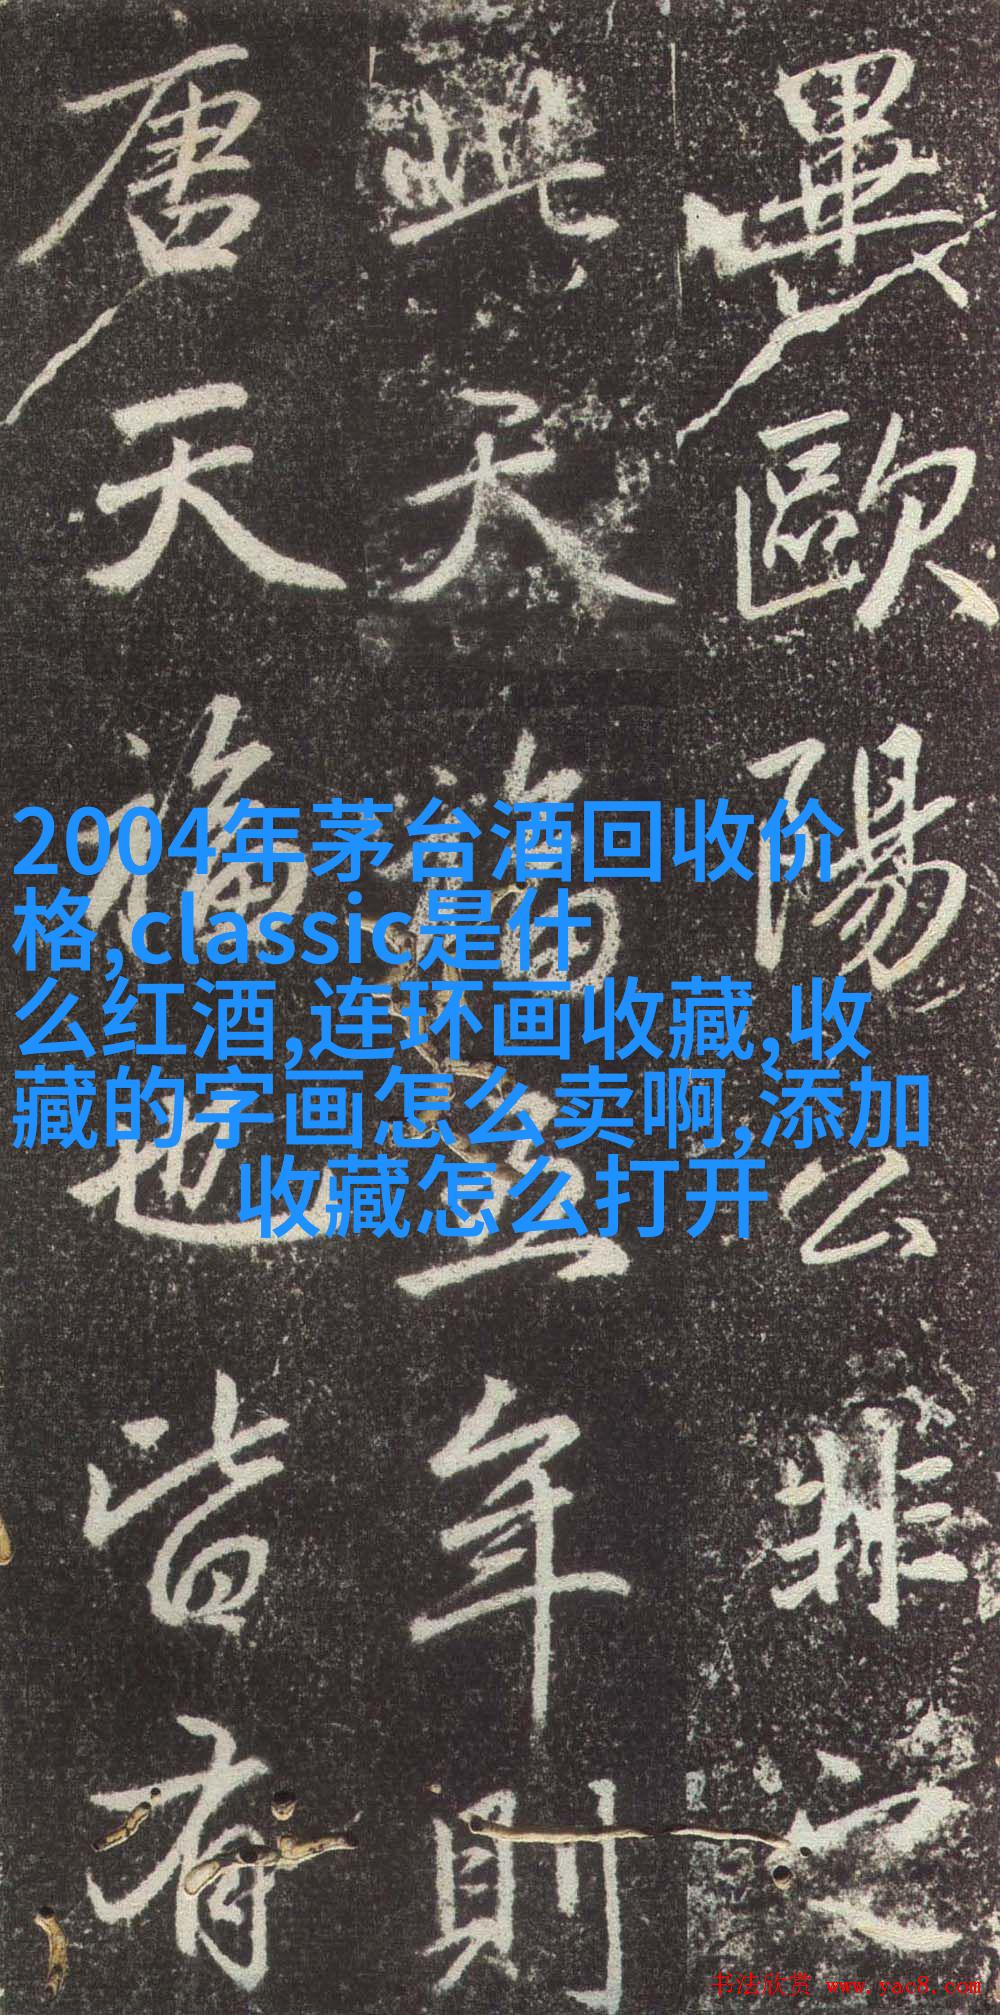 畢歐陽公非之
此天當五年則
唐天福也皆有
2004年茅台酒回收价
格,classic是什
么红酒,连环画收藏,收
藏的字画怎么卖啊,添加
收藏怎么打开
书法欣赏 www.yac8.com